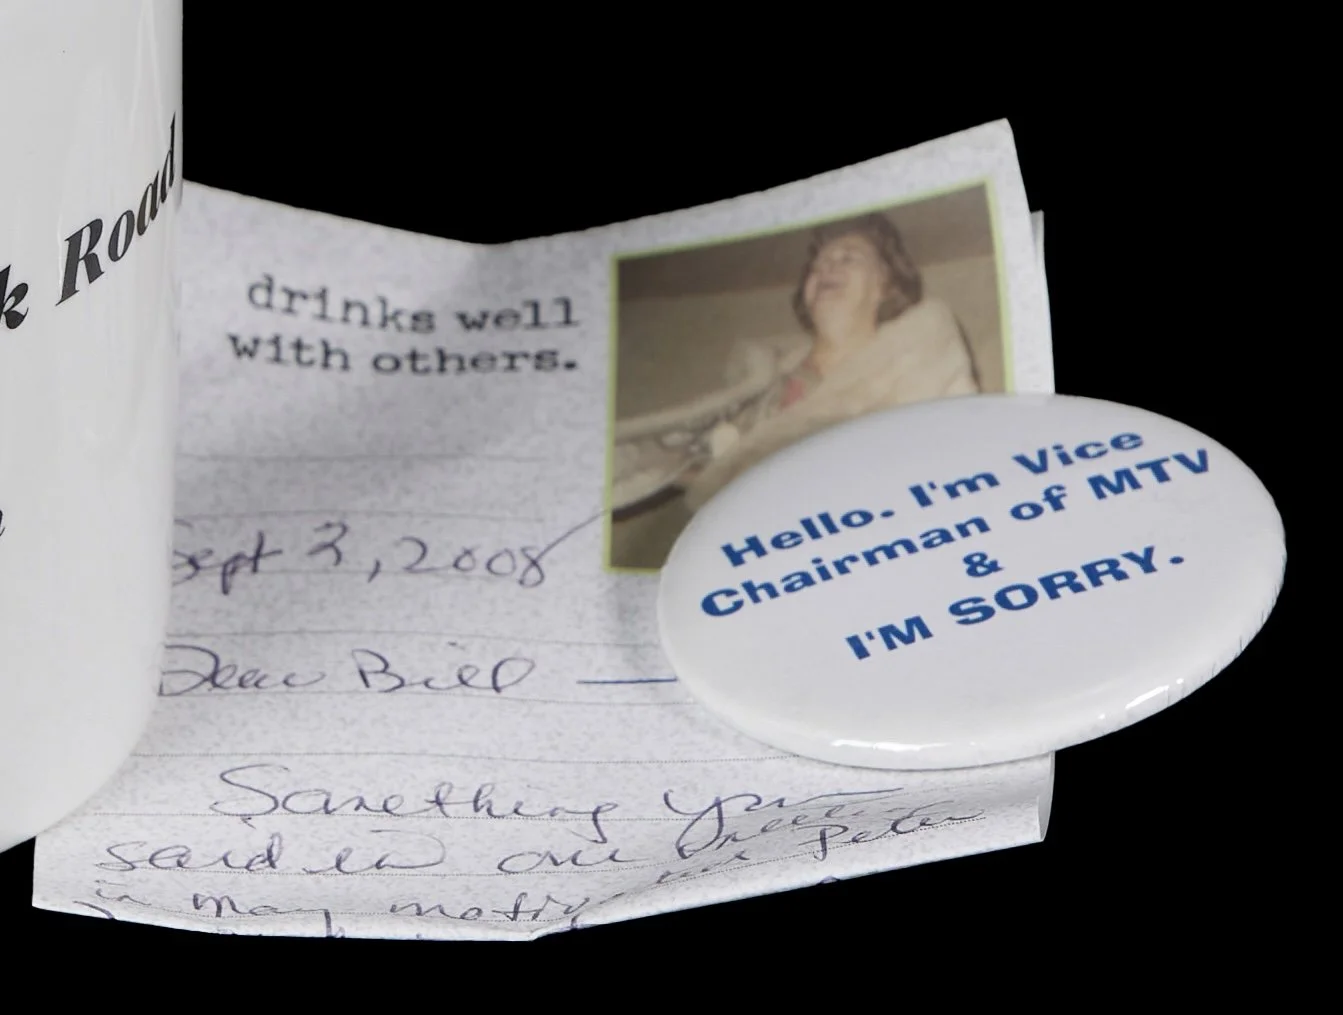 k Road
drinks well
with others.
Sept 3, 2008
Dear Bill —
Something you
said in our
Peter
in may
Hello. I'm Vice
Chairman of MTV
&
I'M SORRY.